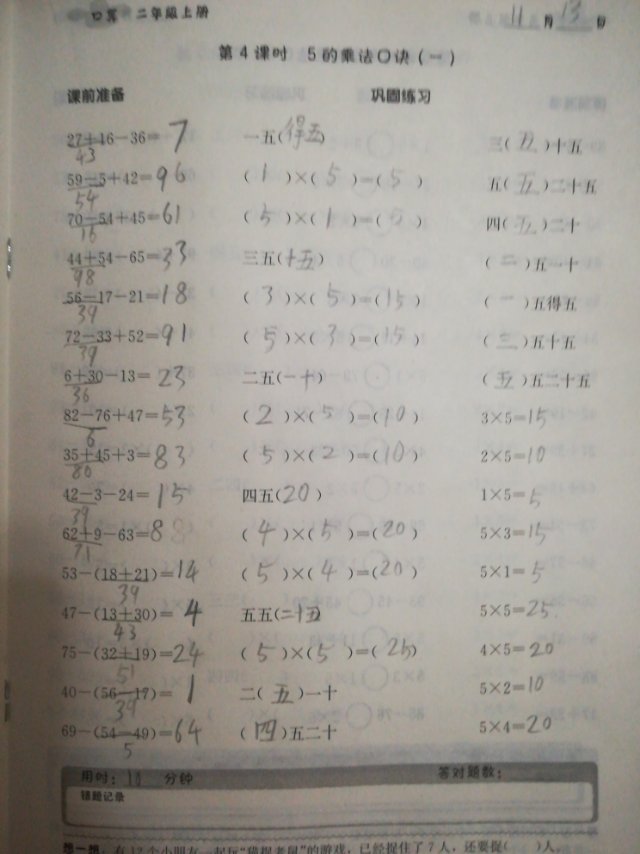 口算 二年级上册
11月13日
第4课时 5的乘法口诀(一)
课前准备
27+16-36=7
43
59-5+42=96
54
70-54+45=61
16
44+54-65=33
98
56-17-21=18
39
72-33+52=91
39
6+30-13=23
36
82-76+47=53
6
35+45+3=83
80
42-3-24=15
39
62+9-63=8
71
53-(18+21)=14
39
47-(13+30)=4
43
75-(32+19)=24
51
40-(56-17)=1
39
69-(54-49)=64
5
巩固练习
一五(得五)
(1)×(5)=(5)
(5)×(1)=(5)
三五(十五)
(3)×(5)=(15)
(5)×(3)=(15)
二五(一十)
(2)×(5)=(10)
(5)×(2)=(10)
四五(20)
(4)×(5)=(20)
(5)×(4)=(20)
五五(二十五)
(5)×(5)=(25)
二(五)一十
(四)五二十
三(五)十五
五(五)二十五
四(五)二十
(二)五一十
(一)五得五
(三)五十五
(五)五二十五
3×5=15
2×5=10
1×5=5
5×3=15
5×1=5
5×5=25
4×5=20
5×2=10
5×4=20
用时:10 分钟
答对题数:
错题记录
想一想:有12个小朋友一起玩“猫捉老鼠”的游戏,已经捉住了7人,还要捉( )人。